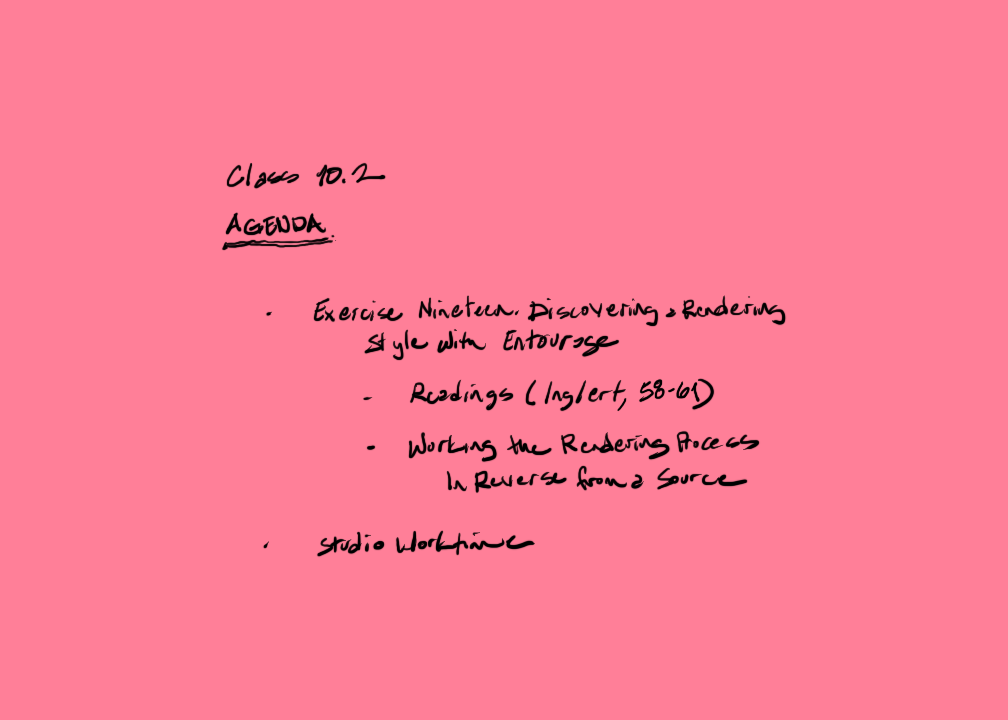 Class 10.2
AGENDA
• Exercise Nineteen. Discovering a Rendering
Style with Entourage
- Readings (Inglert, 58-61)
- Working the Rendering Process
In Reverse from a Source
• Studio Worktime